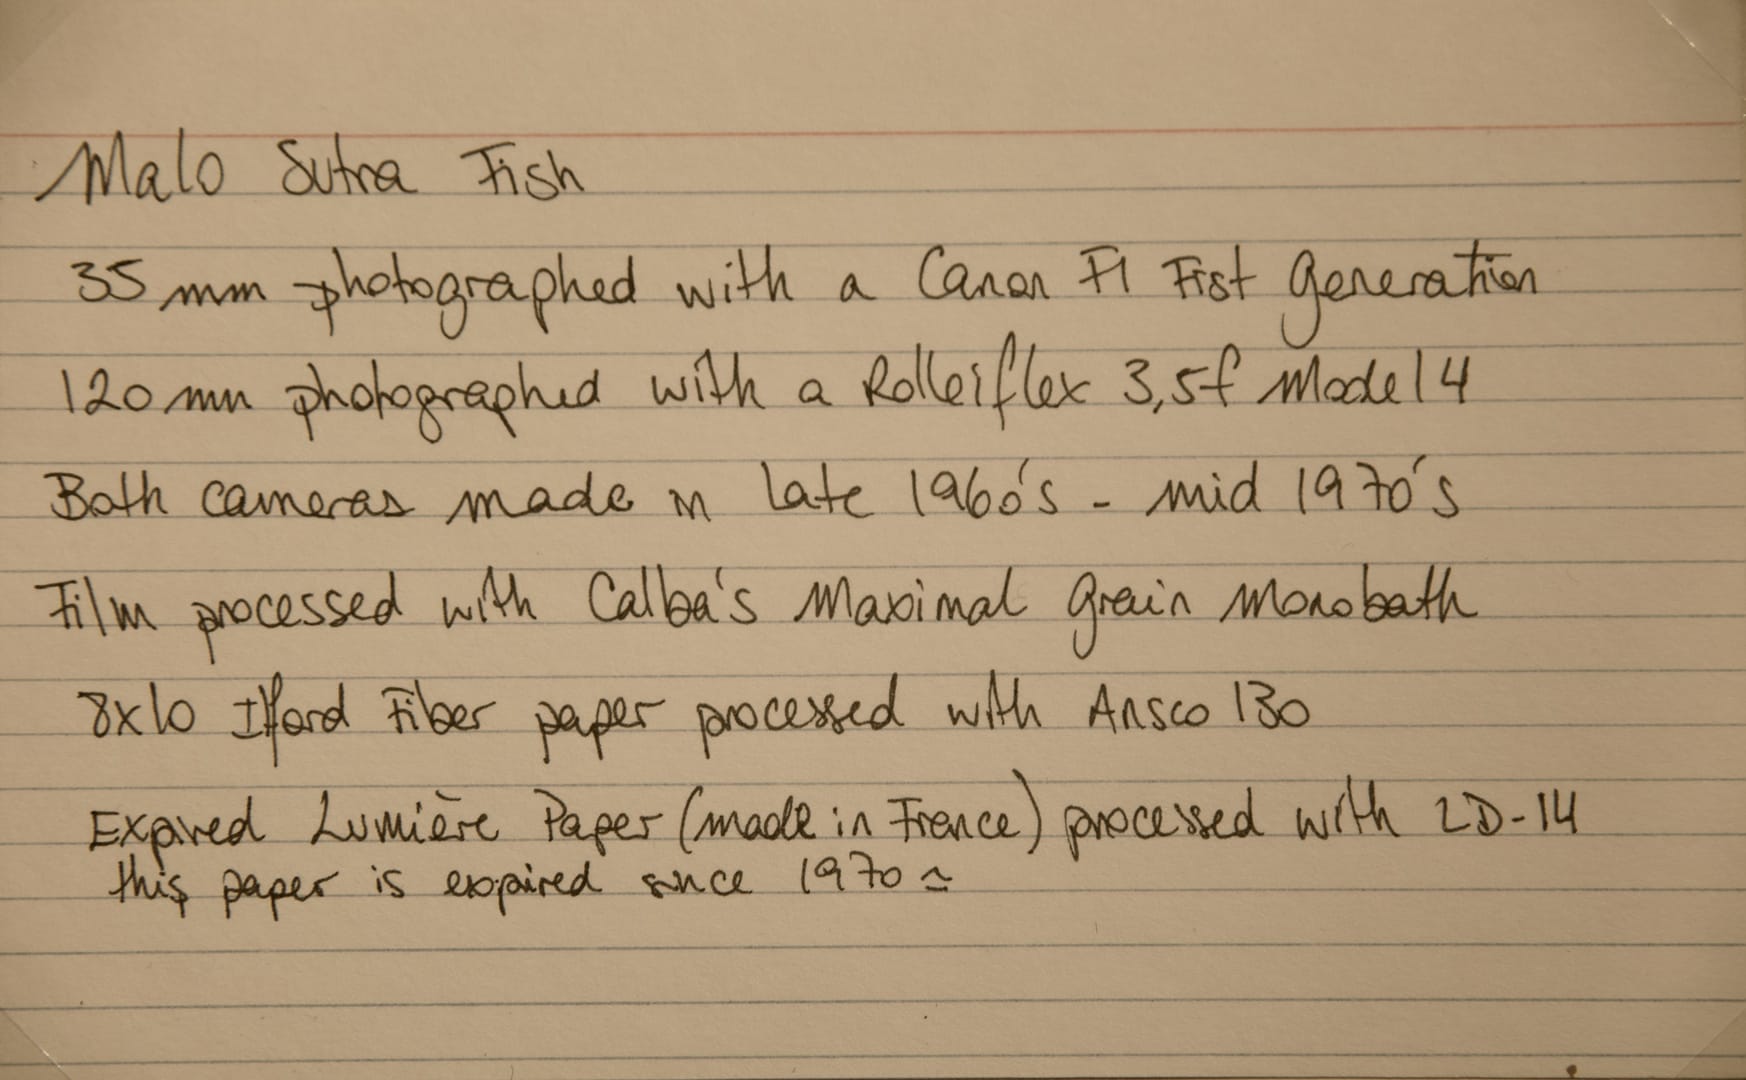 Malo Sutra Fish
35 mm photographed with a Canon F1 Fist Generation
120 mm photographed with a Rolleiflex 3,5f Model 4
Both cameras made in late 1960's - mid 1970's
Film processed with Calba's Maximal Grain Monobath
8x10 Ilford Fiber paper processed with Ansco 130
Expired Lumière Paper (made in France) processed with LD-14
this paper is expired since 1970 ≃